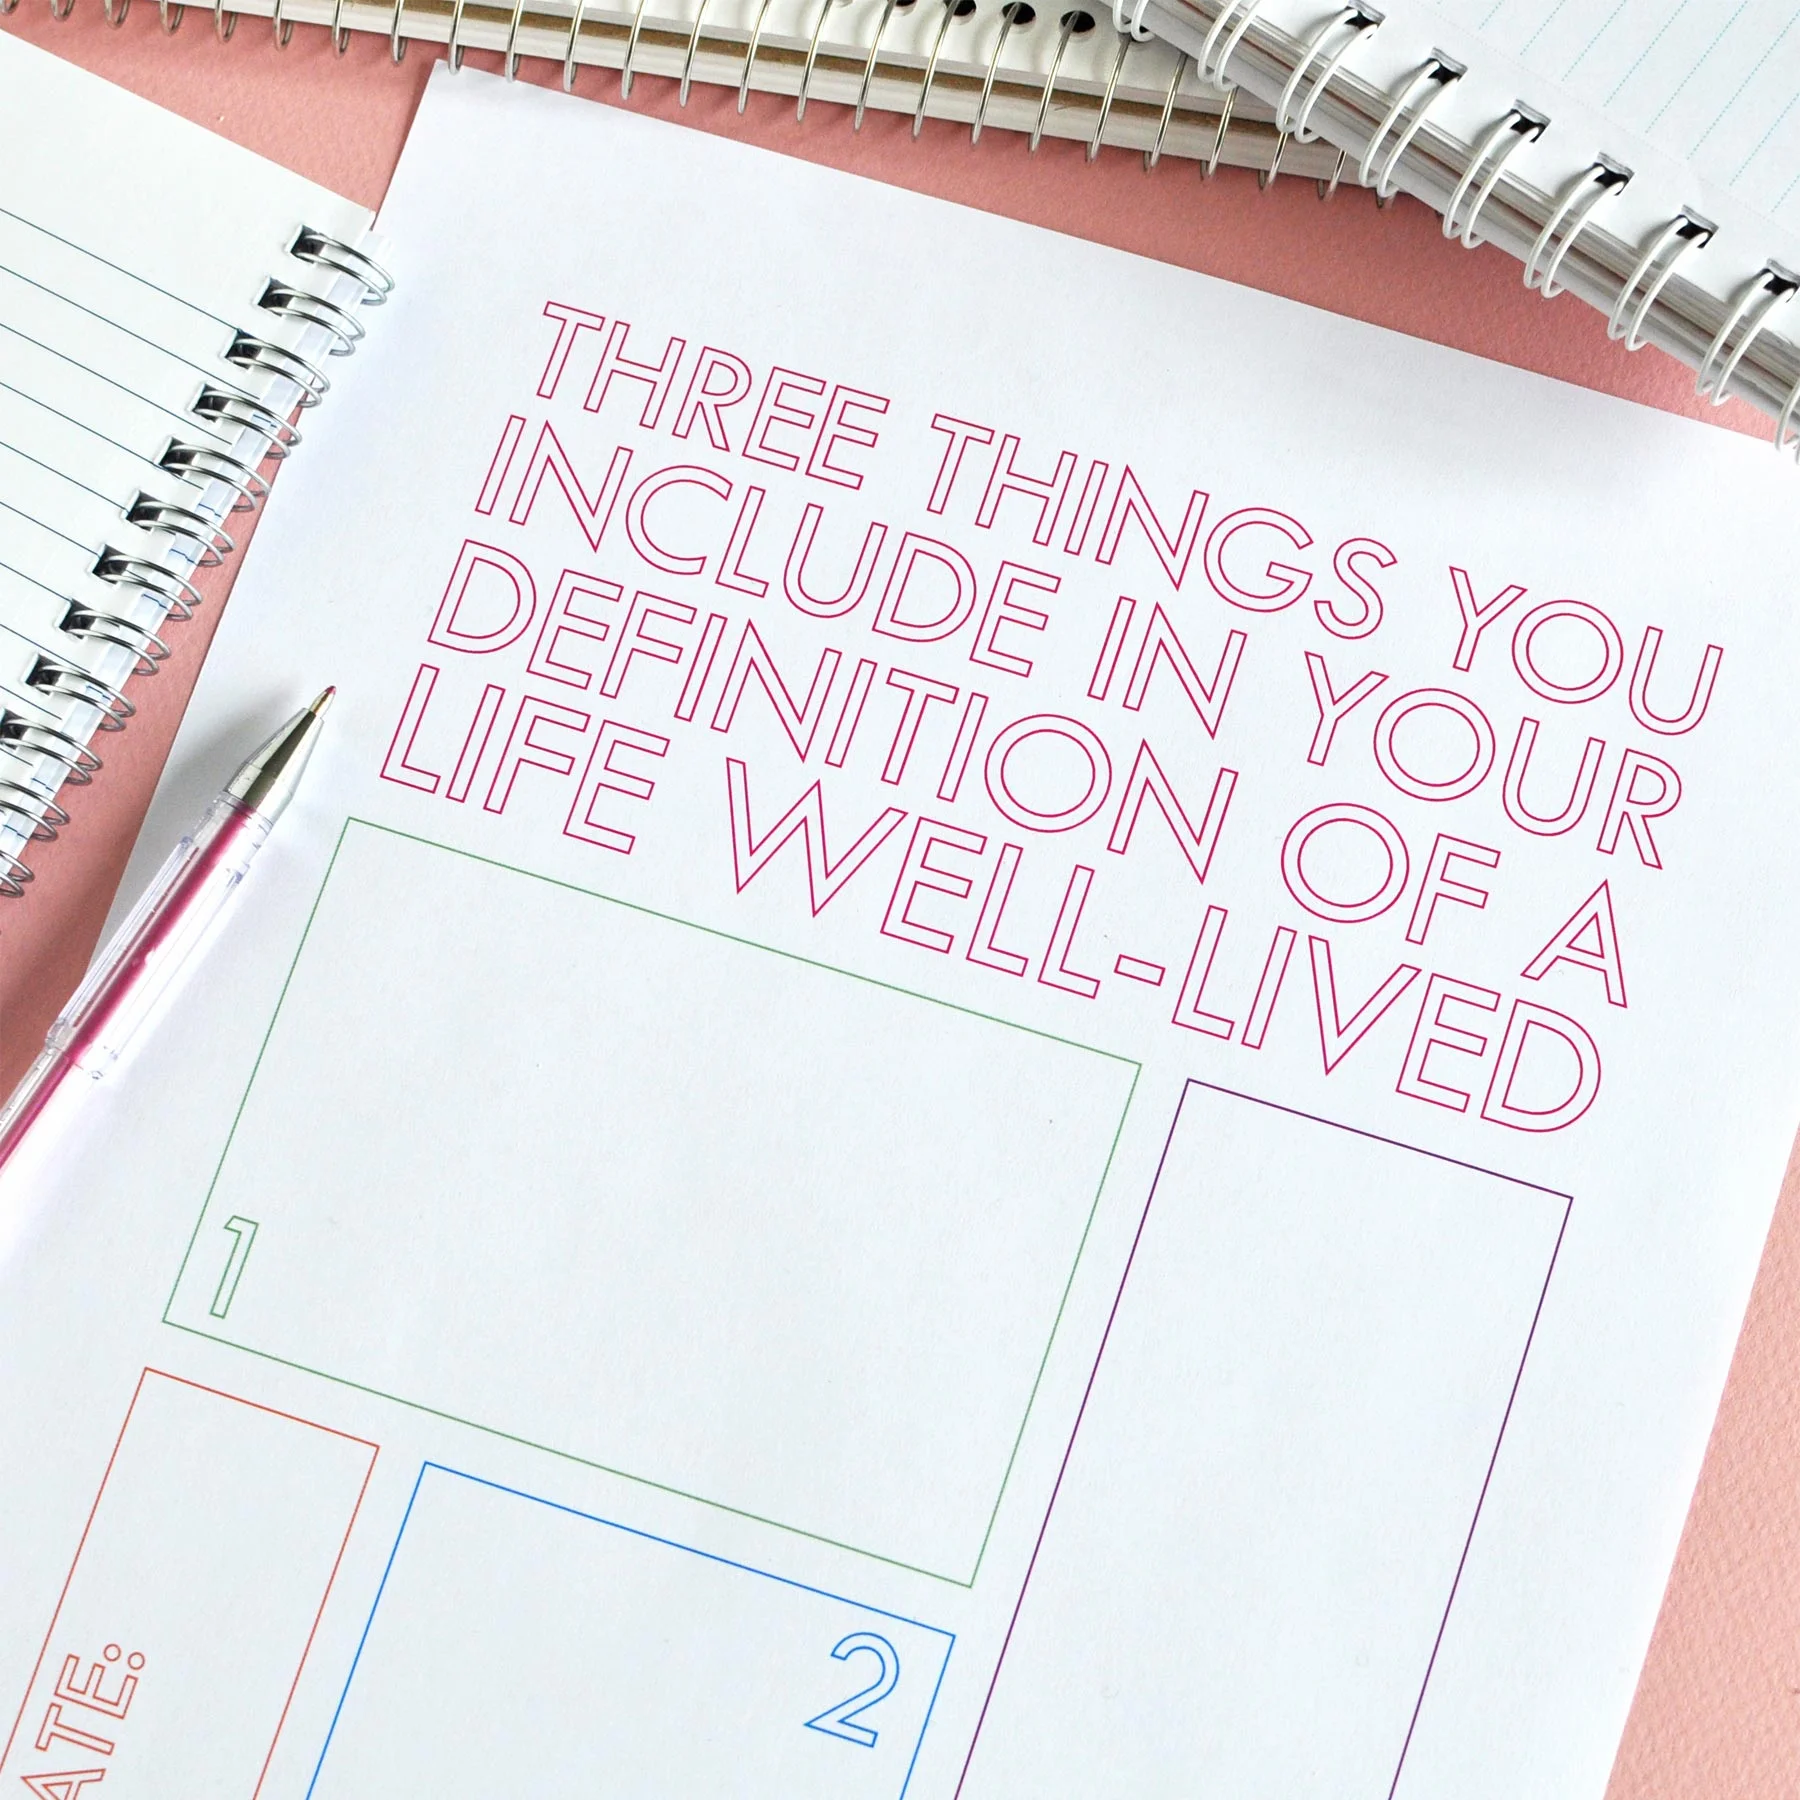 THREE THINGS YOU
INCLUDE IN YOUR
DEFINITION OF A
LIFE WELL-LIVED
1
2
ATE: